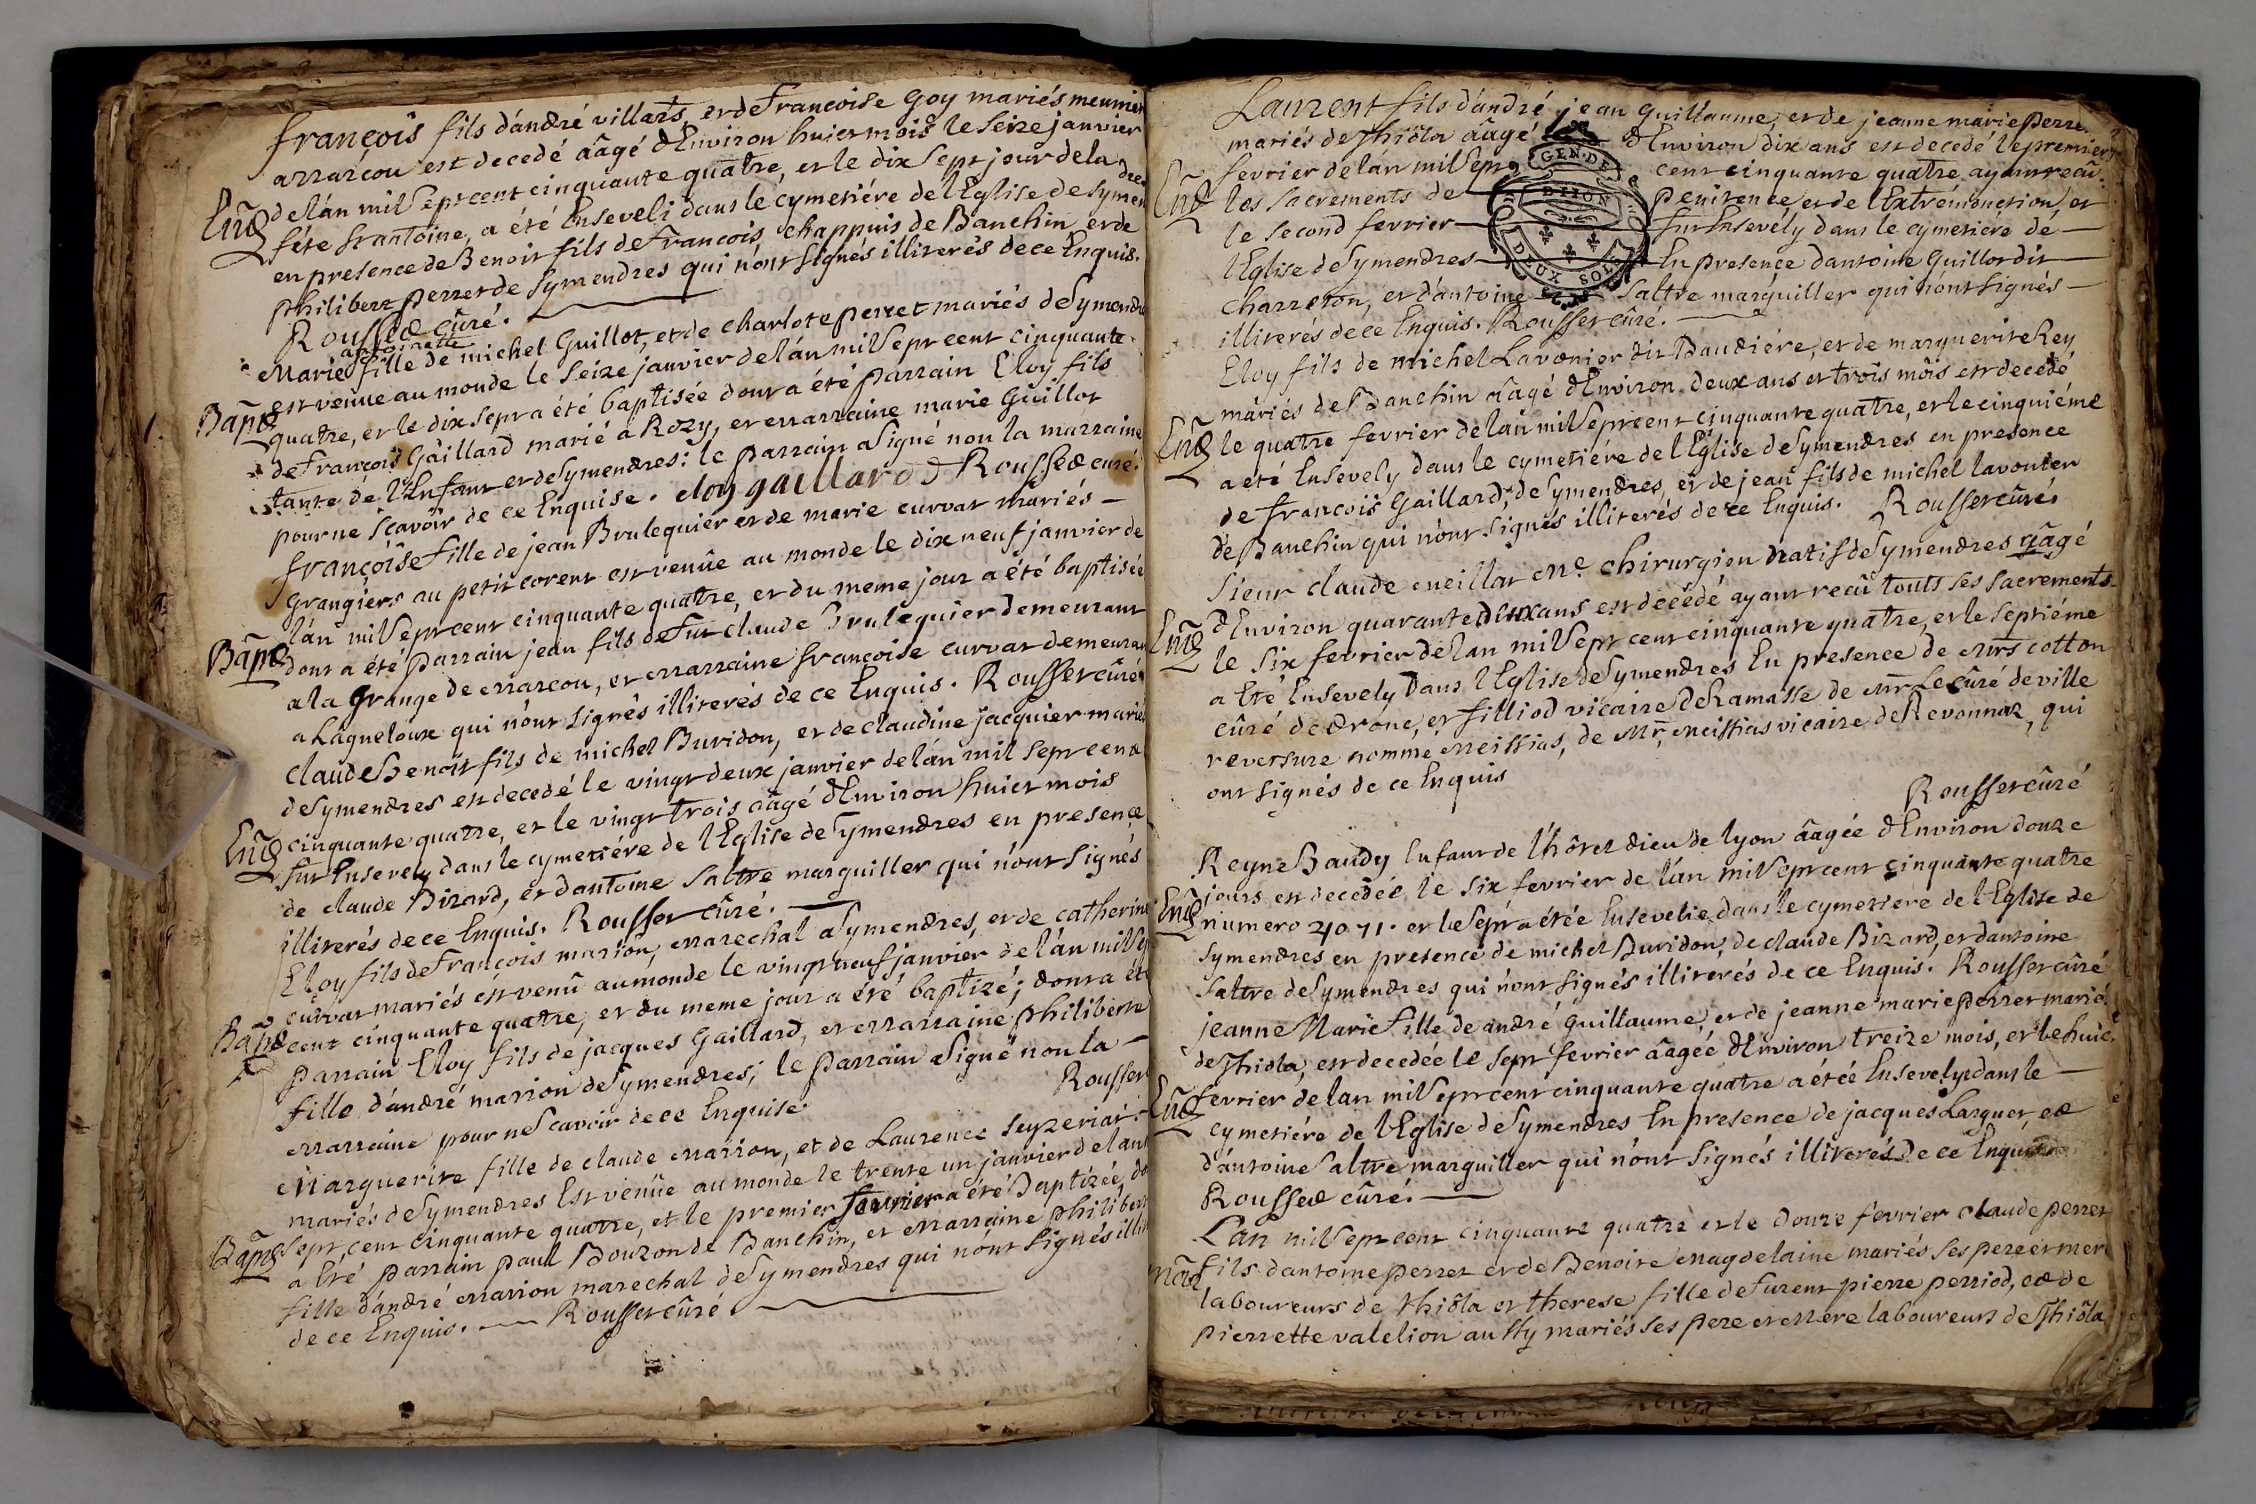 françois fils d'andré villars, et de Francoise Goy mariés meunier
a marcou est decedé âagé d'Environ huict mois le seize janvier
de l'an mil sept cent cinquante quatre, et le dix sept jour de la
Ent féte st antoine, a été Enseveli dans le cymetiére de l'Eglise de Symendres
en presence de Benoit fils de Francois chappuis de Banchin et de
philibert perret de Symendres qui n'ont signés illiterés de ce Enquis.
Rousset cûré.
antoinette
Marie fille de michel Guillot, et de charlote perret mariés de Symendre
est venue au monde le seize janvier de l'an mil sept cent cinquante
Bapt quatre, et le dix sept a été baptisée dont a été parrain Eloy fils
de françois Gaillard marié a Rozy, et marraine marie Guillot
tante de l'Enfant et de Symendres: le parrain a signé non la marraine
pour ne sçavoir de ce Enquise. eloy gaillard Rousset curé.
françoise fille de jean Brulequier et de marie curvat mariés
Grangiers au petit corent est venûe au monde le dix neuf janvier de
l'an mil sept cent cinquante quatre, et du meme jour a été baptisée
Bapt dont a été parrain jean fils de Fut claude Brulequier demeurant
a la Grange de marcou, et marraine françoise curvat demeurant
a Laqueloux qui n'ont signés illiterés de ce Enquis. Rousset cûré
claude Benoit fils de michel Buridon, et de claudine jacquier mariés
de Symendres est decedé le vingt deux janvier de l'an mil sept cent
Ent cinquante quatre, et le vingt trois âagé d'Environ huict mois
fut Ensevely dans le cymetiére de l'Eglise de Symendres en presence
de claude Bizard, et d'antoine saltre marguiller qui n'ont signés
illiterés de ce Enquis. Rousset cûré.
Eloy fils de François marion, marechal a Symendres, et de catherine
curvat mariés est venû au monde le vingt neuf janvier de l'an mil sept
Bapt cent cinquante quatre, et du meme jour a été baptizé; dont a été
parrain Eloy fils de jacques Gaillard, et marraine philiberte
fille d'andré marion de Symendres; le parrain a signé non la
marraine pour ne sçavoir de ce Enquise. Rousset
Marguerite fille de claude marion, et de Laurence Seyzeriat
mariés de Symendres Est venûe au monde le trente un janvier de l'an
Bapt sept cent cinquante quatre, et le premier fevrier a été Baptizée, do
a Eté parrain paul Bouzon de Banchin, et marraine philibert
fille d'andré marion marechal de Symendres qui n'ont signés illit
de ce Enquis. Rousset cûré
Laurent fils d'andré jean Guillaume, et de jeanne marie perret
mariés de thiôla âagé d'Environ dix ans est decedé le premier
fevrier de l'an mil sept cent cinquante quatre ayant reçû
Ent les sacrements de penitence et de l'Extrémonction, et
le second fevrier fut Ensevély dans le cymetiére de
l'Eglise de Symendres En presence d'antoine Guillot dit
charreton, et d'antoine saltre marguiller qui n'ont signés
illiterés de ce Enquis. Rousset cûré.
GEN. DE DIJON
DEUX SOLS
Eloy fils de michel Lavornier dit Baudiére, et de marguerite Rey
mariés de Banchin âagé d'Environ deux ans et trois mois est decedé
Ent le quatre fevrier de l'an mil sept cent cinquante quatre, et le cinquiéme
a été Ensevely dans le cymetiére de l'Eglise de Symendres en presence
de françois Gaillard, de Symendres, et de jean fils de michel lavouter
de Banchin qui n'ont signés illiterés de ce Enquis. Rousset cûré.
Sieur claude meillat me. chirurgien natif de Symendres âagé
d'Environ quarante Deux ans est decedé ayant reçû touts ses sacrements
Ent le six fevrier de l'an mil sept cent cinquante quatre, et le septiéme
a Eté Ensevely Dans l'Eglise de Symendres En presence de mrs cotton
cûré de drone, et filliod vicaire De Ramasse de mr Le cûré de ville
reversure nommé meissias, de mr. meissias vicaire de Revonnaz, qui
ont signés de ce Enquis
Rousset cûré
Reyne Baudy Enfant de l'hôtel dieu de lyon âagée d'Environ douze
jours est decedée le six fevrier de l'an mil sept cent cinquante quatre
Ent numero 4071. et le sept a étée Ensevelie dans le cymetiére de l'Eglise de
Symendres en presence de michel Buridon, de claude Bizard, et d'antoine
saltre de Symendres qui n'ont signés illiterés de ce Enquis. Rousset cûré
jeanne Marie fille de andré guillaume, et de jeanne marie perret mariés
de thiola, est decedée le sept fevrier âagée d'Environ treize mois, et le huict
Ent fevrier de l'an mil sept cent cinquante quatre a étée Ensevelye dans le
cymetiére de l'Eglise de Symendres En presence de jacques Larguet, et
d'antoine saltre marguiller qui n'ont signés illiterés de ce Enquis
Rousset cûré.
L'an mil sept cent cinquante quatre et le douze fevrier claude perret
Mar fils d'antoine perret et de Benoite magdelaine mariés ses pere et mere
laboureurs de thiôla et therese fille de furent pierre perriod, et de
pierrette valelion aussy mariés ses pere et mere laboureurs de thiôla